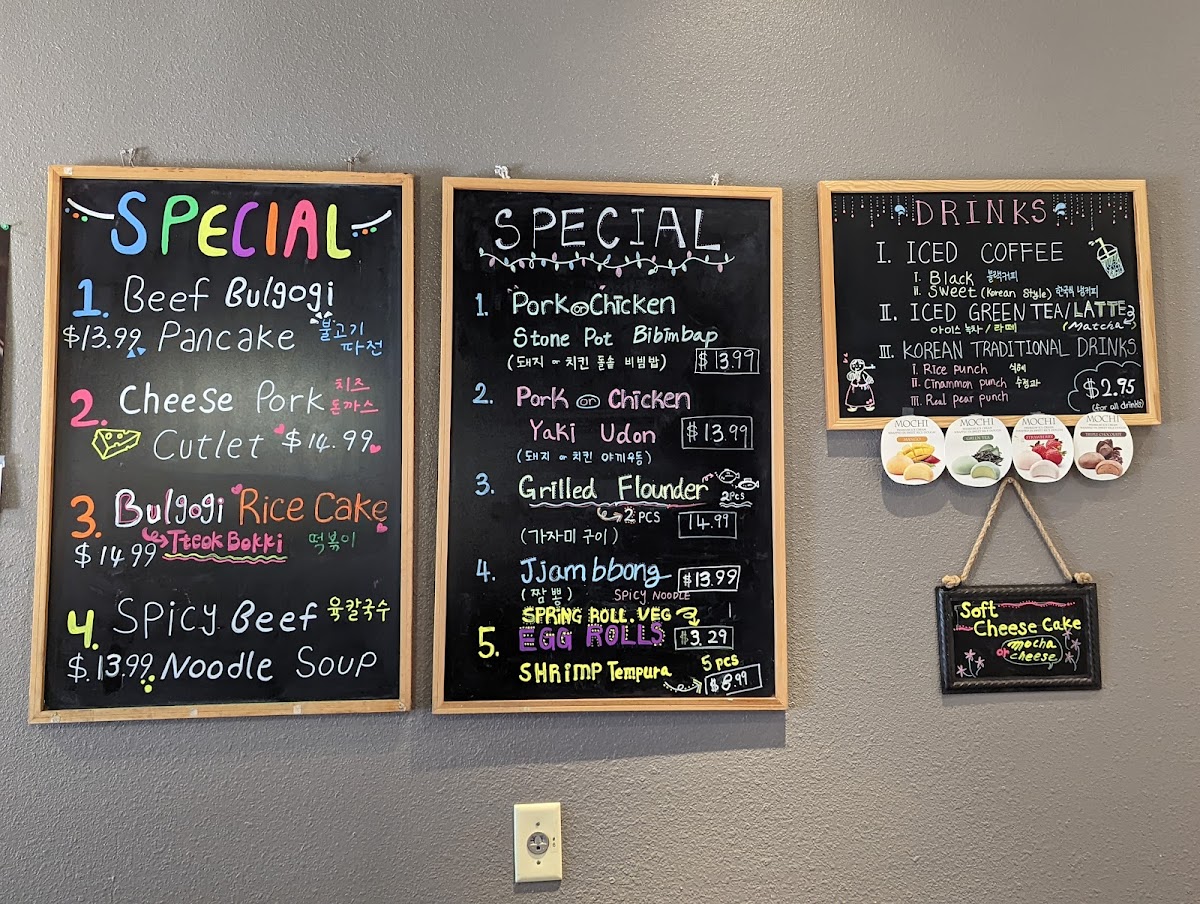 SPECIAL
1. Beef Bulgogi
$13.99 Pancake 불고기
파전
2. Cheese Pork 치즈
돈까스
Cutlet $14.99
3. Bulgogi Rice Cake
Tteok Bokki 떡볶이
$14.99
4. Spicy Beef 육칼국수
$.13.99 Noodle Soup
SPECIAL
1. Pork or Chicken
Stone Pot Bibimbap
(돼지 or 치킨 돌솥 비빔밥) $13.99
2. Pork or Chicken
Yaki Udon $13.99
(돼지 or 치킨 야끼우동)
3. Grilled Flounder 2pcs
2 PCS 14.99
(가자미 구이)
4. Jjambbong $13.99
(짬뽕) SPICY NOODLE
SPRING ROLL.VEG
5. EGG ROLLS $3.29
SHRIMP Tempura 5 pcs
DRINKS
I. ICED COFFEE
I. Black 블랙커피
II. Sweet (Korean Style) 한국식 냉커피
II. ICED GREEN TEA/LATTE
아이스 녹차 / 라떼 (Matcha)
III. KOREAN TRADITIONAL DRINKS
I. Rice punch 식혜
II. Cinammon punch 수정과
III. Real pear punch
$2.95
(for all drinks)
MOCHI MOCHI MOCHI MOCHI
MANGO GREEN TEA STRAWBERRY TRIPLE CHOCOLATE
Soft
Cheese Cake
mocha
or cheese